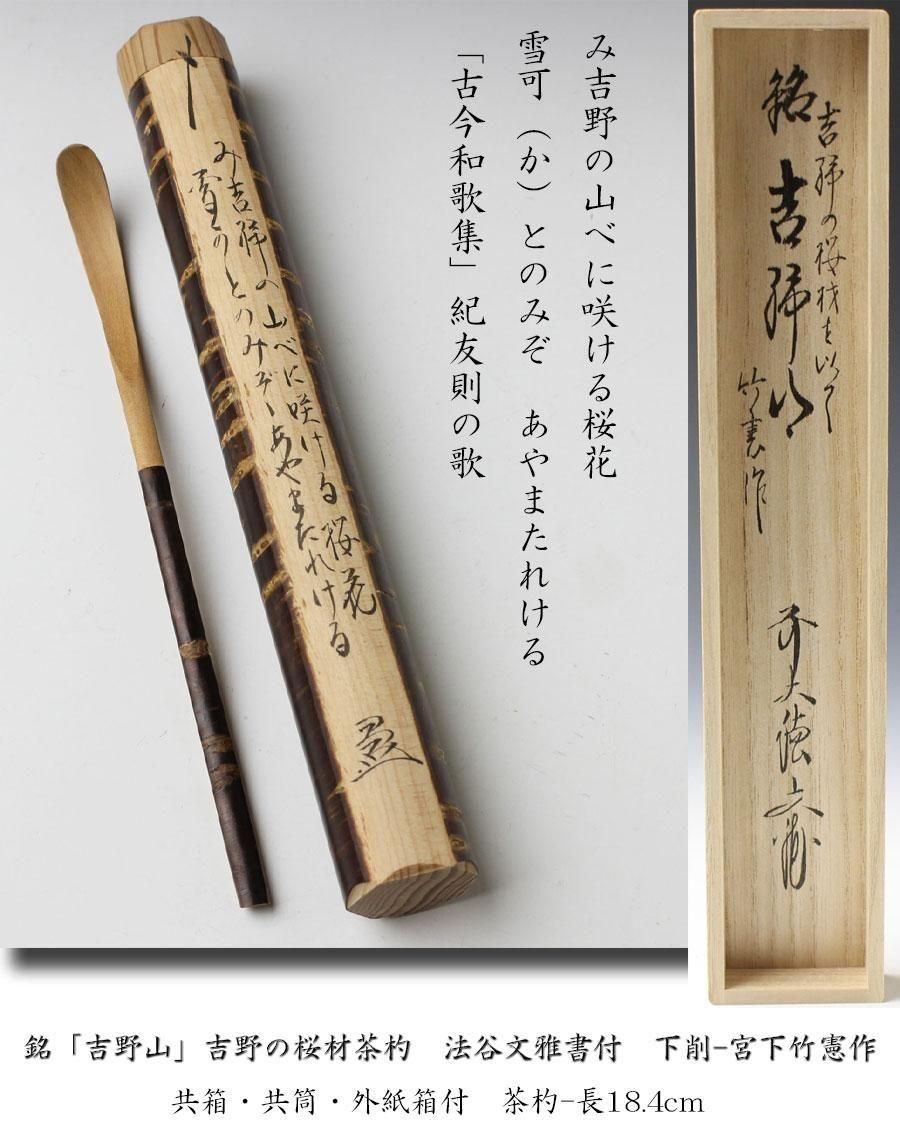 み吉野の山べに咲ける桜花
雪可（か）とのみぞ　あやまたれける
「古今和歌集」紀友則の歌
み吉野の山べに咲ける桜花
雪かとのみぞあやまたれける
吉野の桜材を以て
銘 吉野山
竹憲作
大徳文雅
銘「吉野山」吉野の桜材茶杓　法谷文雅書付　下削-宮下竹憲作
共箱・共筒・外紙箱付　茶杓-長18.4cm